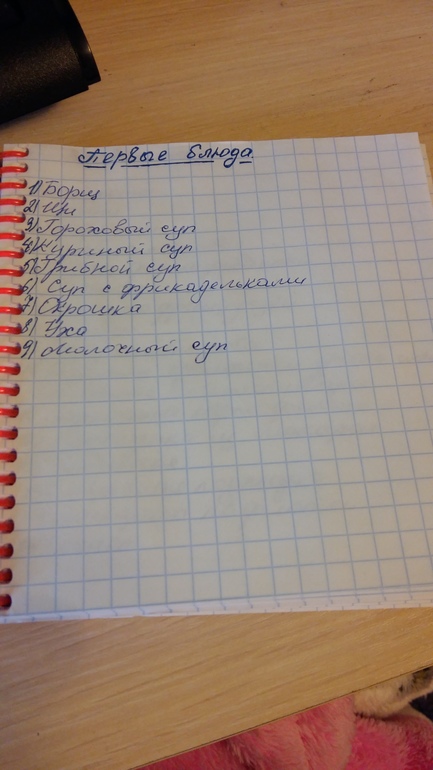 Первые блюда.
1) Борщ
2) Щи
3) Гороховый суп
4) Куриный суп
5) Грибной суп
6) Суп с фрикадельками
7) Окрошка
8) Уха
9) Молочный суп